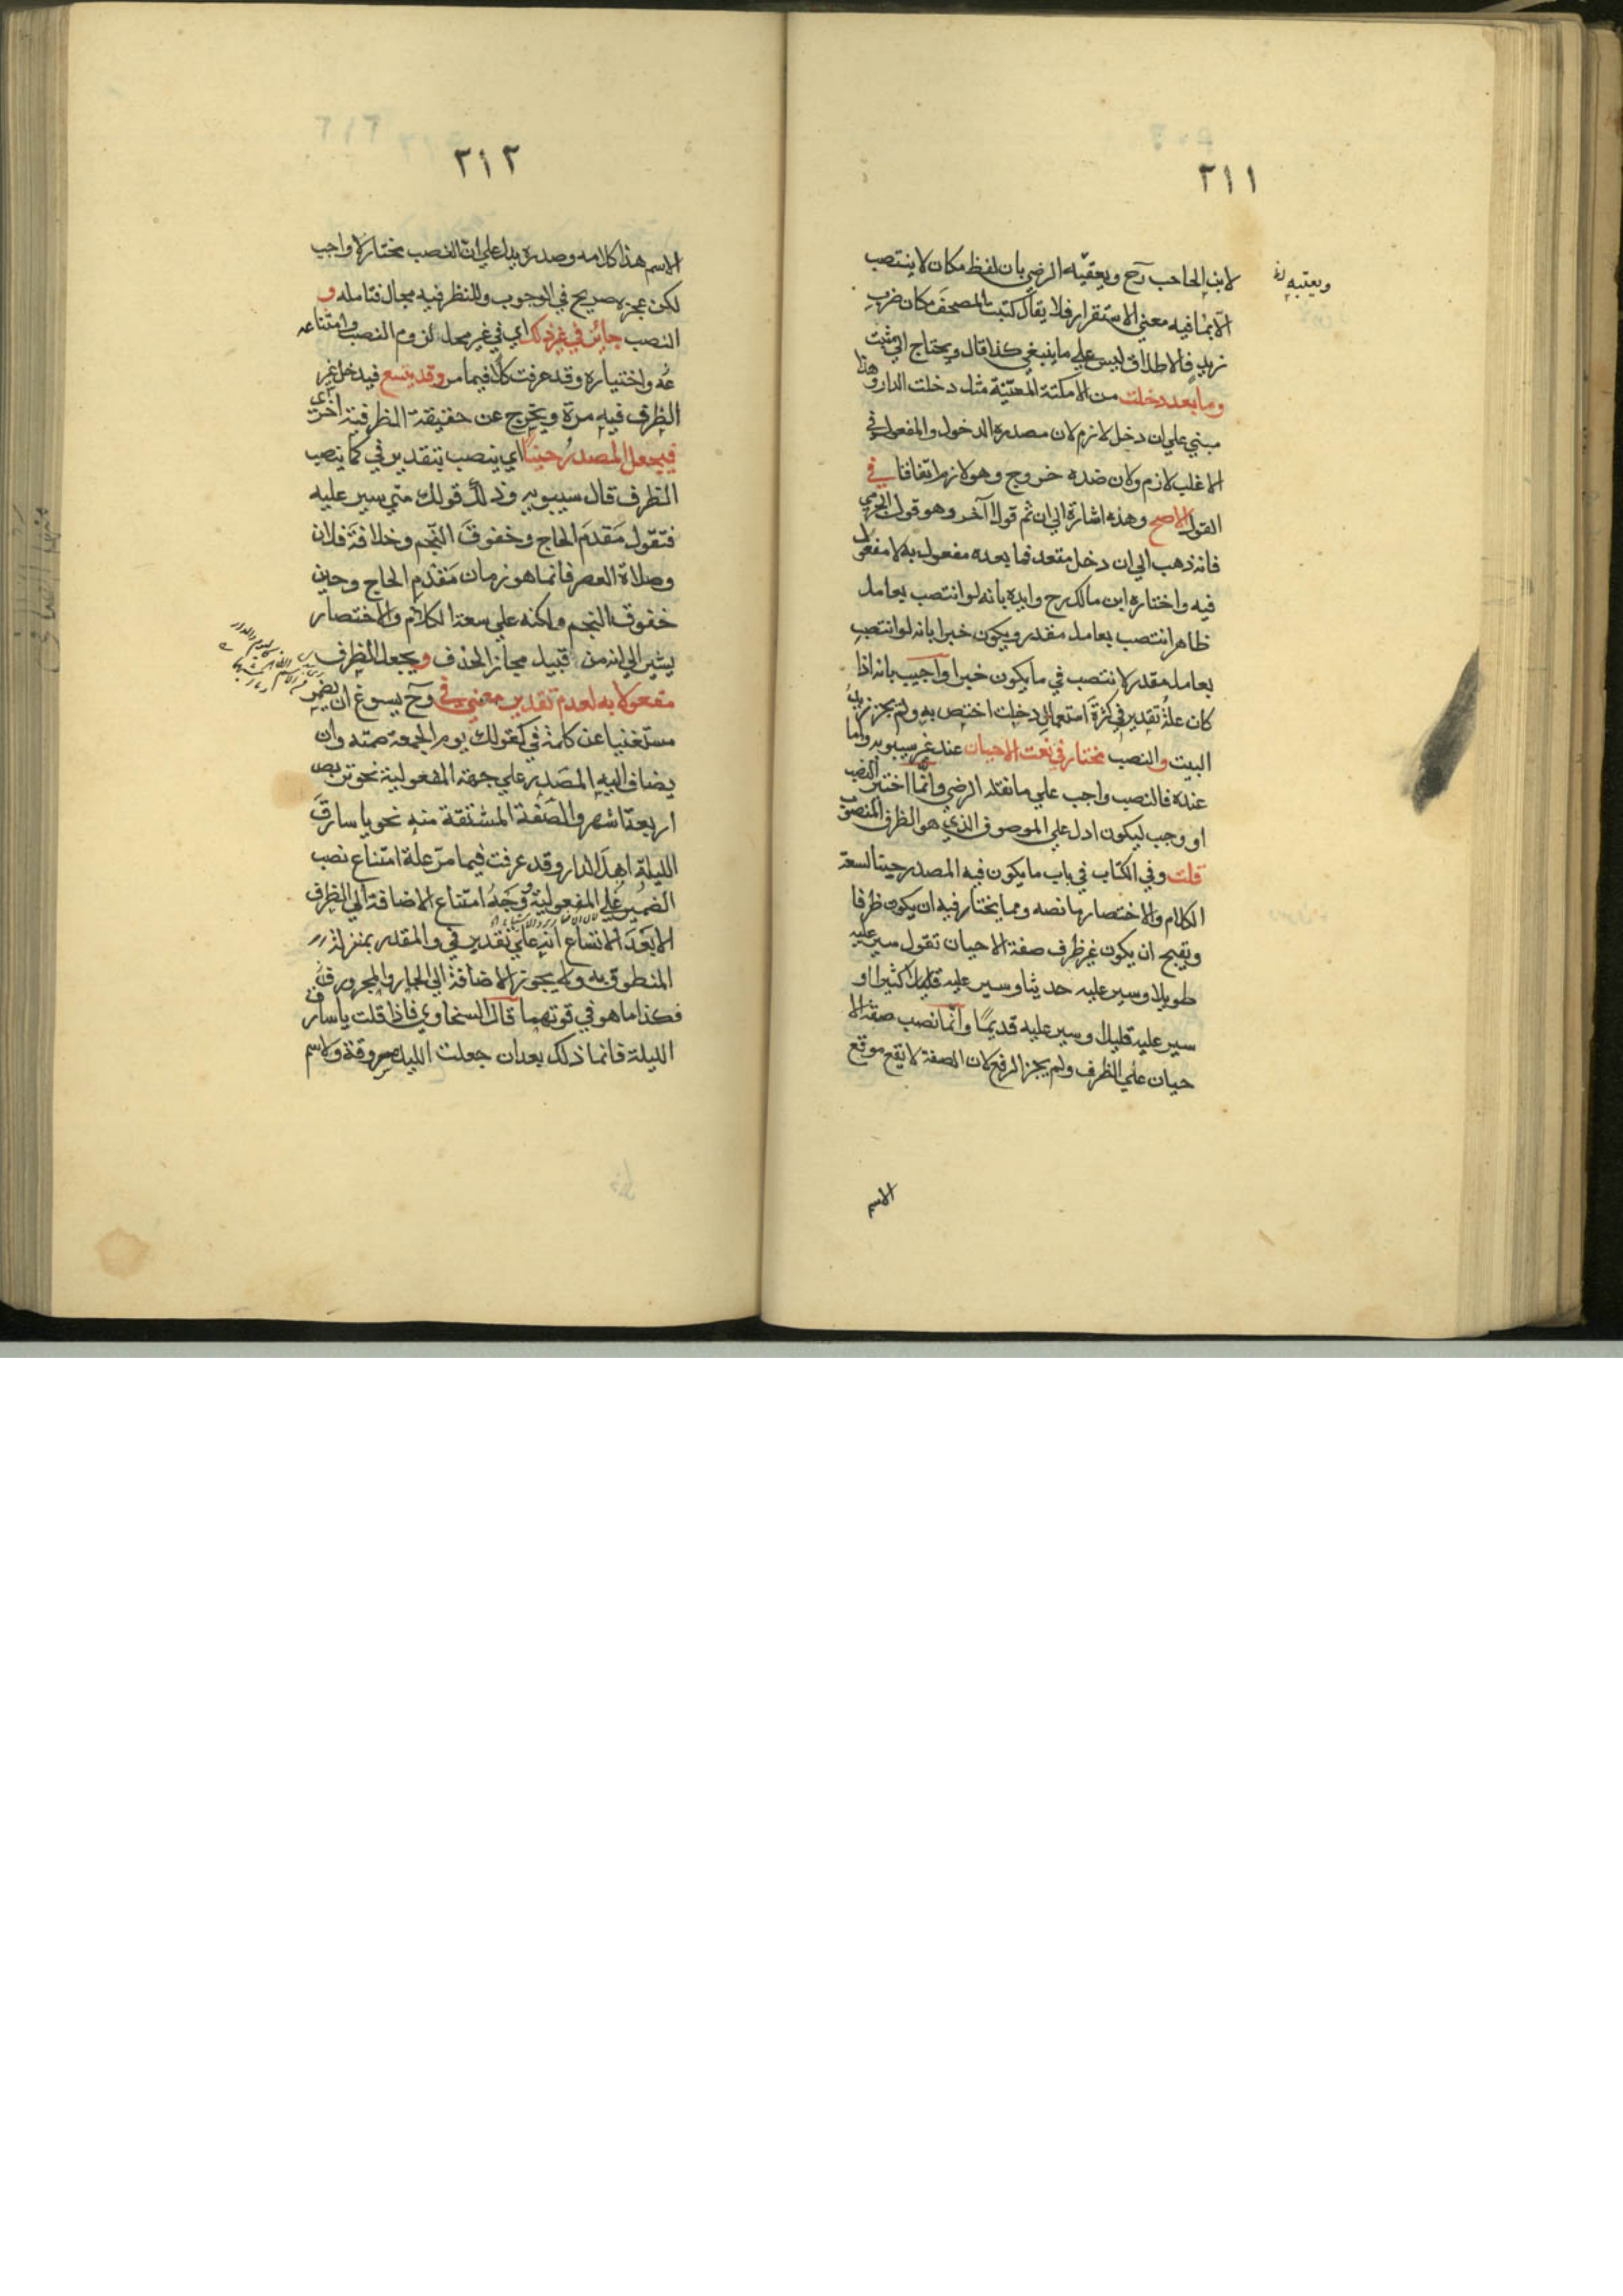 ٢١١
لابن الحاجب رح ويعقبه الرضي بان لفظ مكان لا ينتصب
ويعتبه
الا بما فيه معنى الاستقرار فلا يقال كتبت المصحف مكان ضرب
زيد فالاطلاق ليس علي ما ينبغي كذا قال ويحتاج الي مثبت
وما بعد دخلت من الامكنة المعينة مثل دخلت الدار وهذا
مبني علي ان دخل لازم لان مصدره الدخول والمفعول في
الاغلب لازم ولان ضده خروج وهو لازم اتفاقا في
القول الاصح وهذه اشارة الي ان ثم قولا آخر وهو قول الجرمي
فانه ذهب الي ان دخل متعد فما بعده مفعول به لا مفعول
فيه واختاره ابن مالك رح وايده بانه لو انتصب بعامل
ظاهر انتصب بعامل مقدر ويكون خبرا بانه لو انتصب
بعامل مقدر لانتصب في ما يكون خبرا واجيب بانه اذا
كان علة تقدير في كثرة استعمال دخلت اختص به ولم يجز زيد
البيت والنصب مختار في نعت الاحيان عند غير سيبويه واما
عنده فالنصب واجب علي ما نقله الرضي وانما اختير النصب
او وجب ليكون ادل علي الموصوف الذي هو الظرف المنصوب
قلت وفي الكتاب في باب ما يكون فيه المصدر حينا لسعة
الكلام والاختصار ما نصه ومما يختار فيه ان يكون ظرفا
ويقبح ان يكون غير ظرف صفة الاحيان تقول سير عليه
طويلا وسير عليه حديثا وسير عليه قليلا كثيرا و
سير عليه قليلا وسير عليه قديمًا وانما نصب صفة الا
حيان علي الظرف ولم يجز الرفع لان الصفة لا تقع موقع
الاسم
٢١٢
الاسم هذا كلامه وصدره يدل علي ان النصب مختار لا واجب
لكن عجزه صريح في الوجوب وللنظر فيه مجال فتامله و
النصب جائز في غير ذلك اي في غير محل لزوم النصب وامتناعه
واختياره وقد عرفت كلا فيما مر وقد يتسع فيدخل غير
الظرف فيه مرة ويخرج عن حقيقة الظرفية اخرى
فيجعل المصدر حينًا اي ينصب بتقدير في كما ينصب
الظرف قال سيبويه وذلك قولك متي سير عليه
فتقول مَقدمَ الحاج وخفوقَ النجم وخلافة فلان
وصلاة العصر فانما هو زمان مَقدم الحاج وحين
خفوق النجم ولكنه علي سعة الكلام والاختصار
يشير الي انه من قبيل مجاز الحذف ويجعل الظرف
مفعولا به لعدم تقدير معني في وح يسوغ ان يضمر
مستغنيا عن كلمة في كقولك يوم الجمعة صمته وان
يضاف اليه المصدر علي جهة المفعولية نحو تربص
اربعة اشهر والصفة المشتقة منه نحو يا سارق
الليلة اهل الدار وقد عرفت فيما مر علة امتناع نصب
الضمير علي المفعولية ووجه امتناع الاضافة الي الظرف
الا بعد الاتساع انه علي تقدير في والمقدر بمنزلة
المنطوق به ولا يجوز الاضافة الي الجار والمجرور
فكذا ما هو في قوتهما قال السخاوي فاذا قلت يا سارق
الليلة فانما ذلك بعد ان جعلت الليلة مسروقة ولاسم